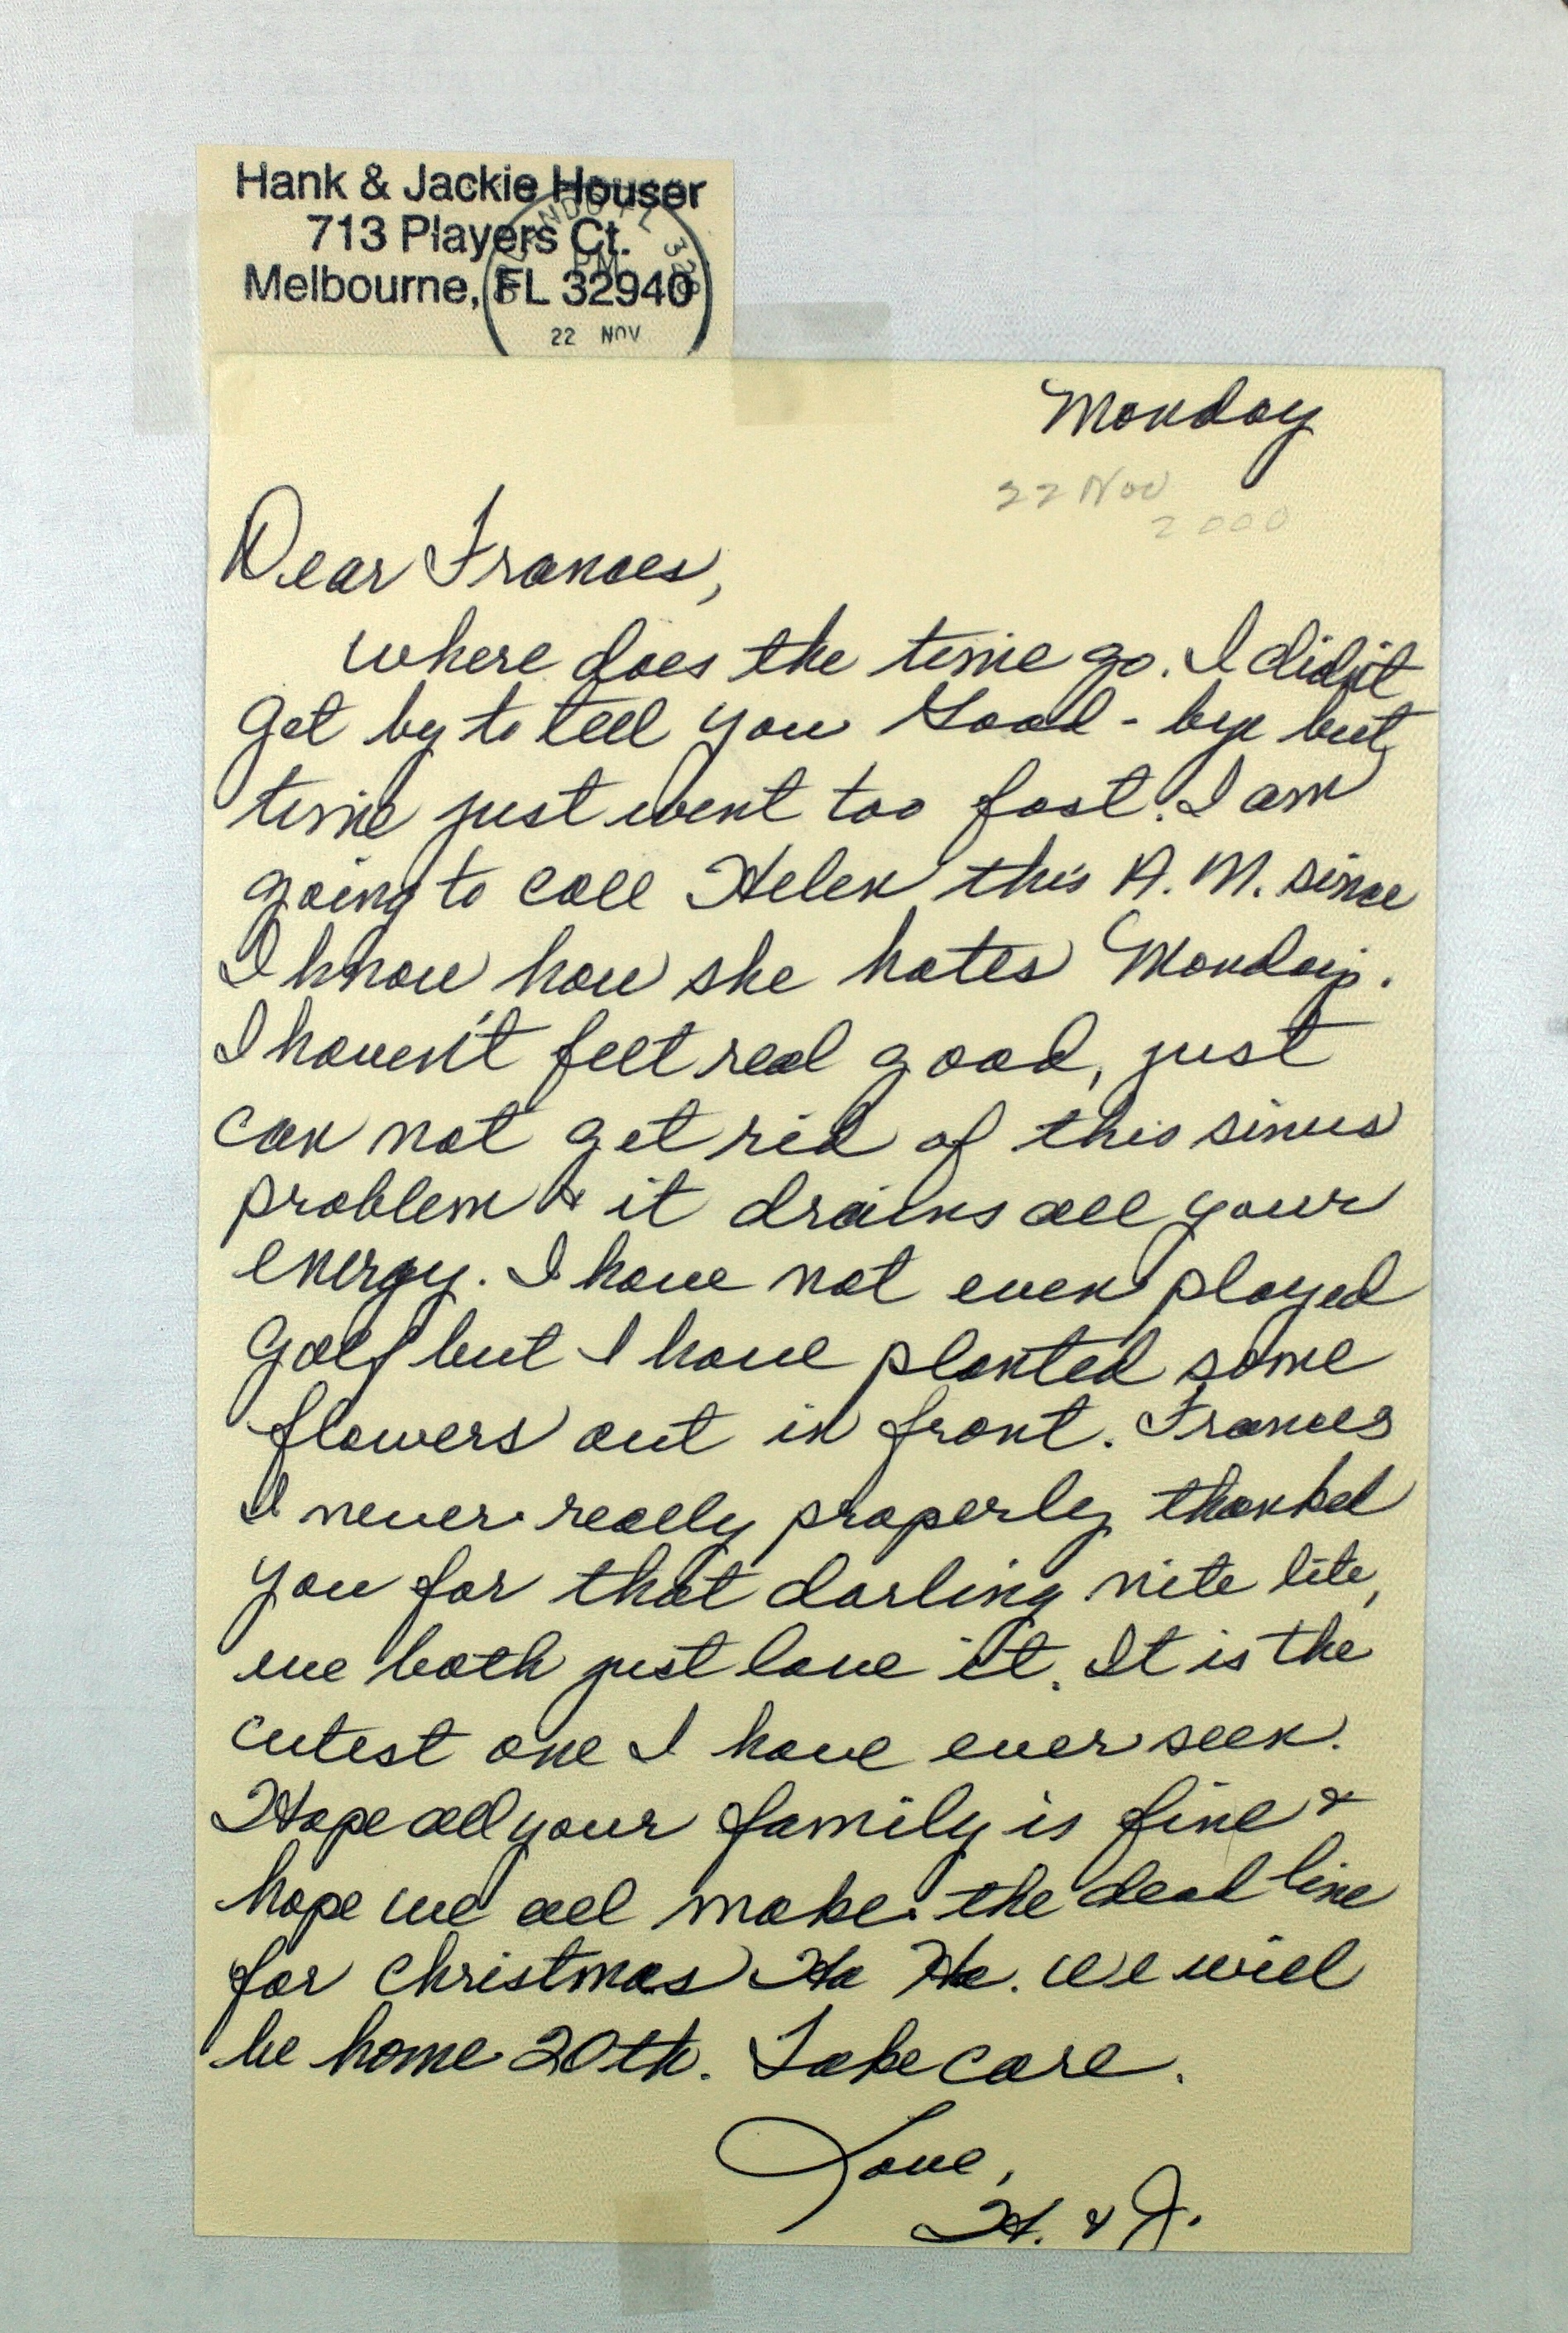 Hank & Jackie Houser
713 Players Ct.
Melbourne, FL 32940
ORLANDO FL 328
PM
22 NOV
Monday
22 Nov
2000
Dear Frances,
where does the time go. I didn't
get by to tell you Good-bye but
time just went too fast. I am
going to call Helen this A.M. since
I know how she hates Mondays.
I haven't felt real good, just
can not get rid of this sinus
problem & it drains all your
energy. I have not even played
golf but I have planted some
flowers out in front. Frances
I never really properly thanked
you for that darling nite lite,
we both just love it. It is the
cutest one I have ever seen.
Hope all your family is fine &
hope we all make the dead line
for Christmas Ha Ha. We will
be home 20th. Take care.
Love,
H. & J.